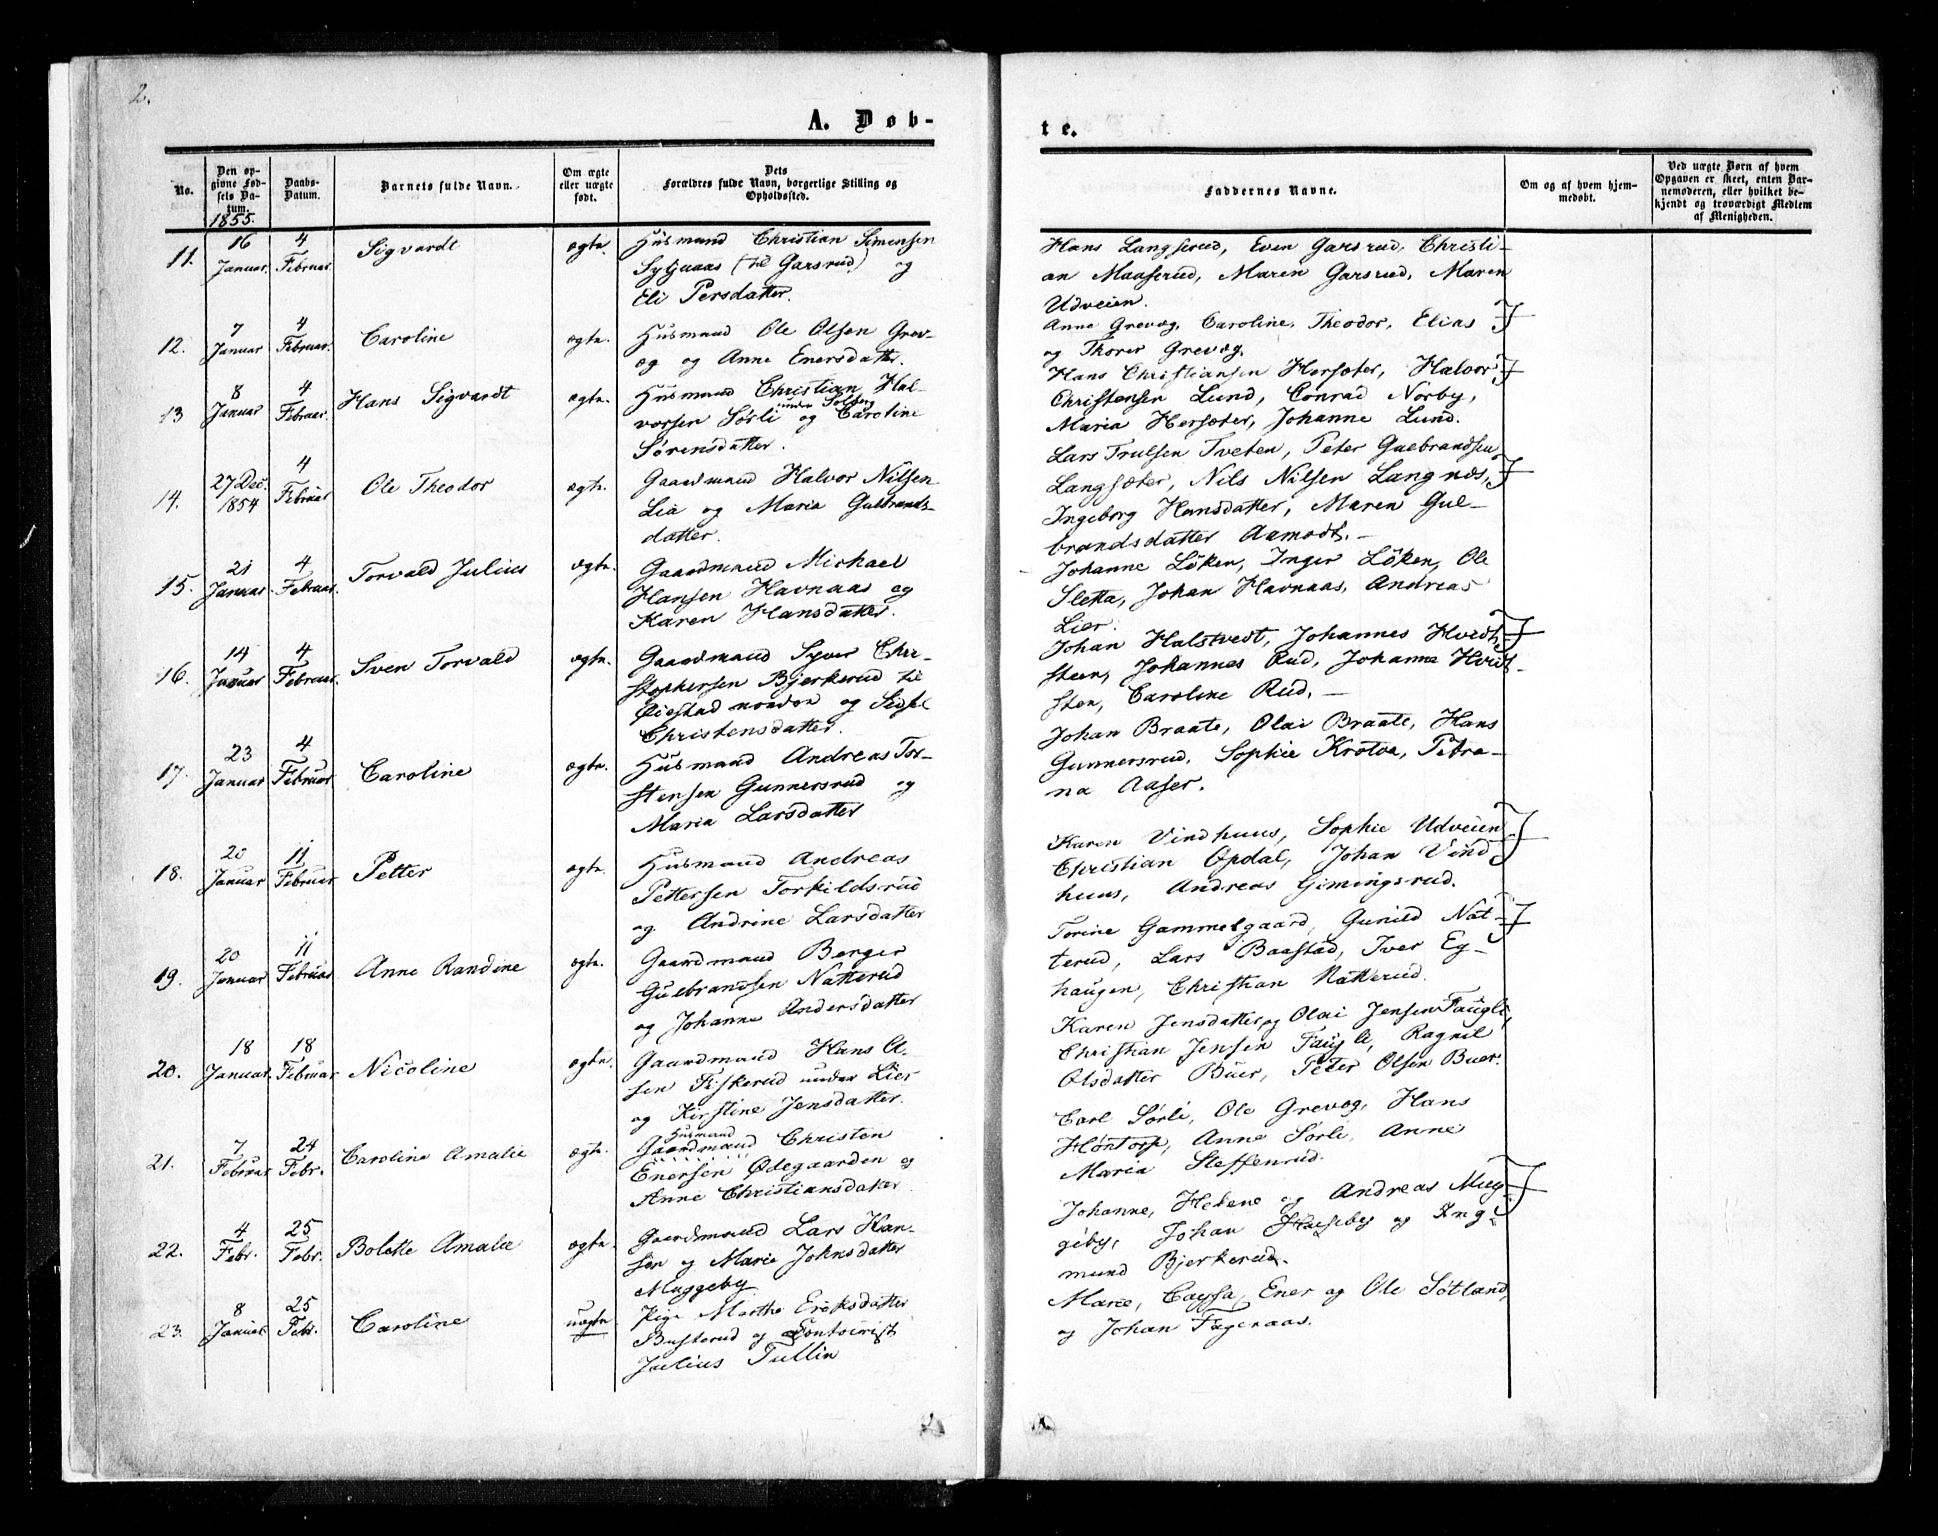 2.
A. Døb-
te.
No.
Den op-
givne Fød-
sels Da-
tum.
1855.
Daabs-
Datum.
Barnets fulde Navn.
Om ægte
eller uægte
født.
Dets
Forældres fulde Navn, borgerlige Stilling og
Opholdssted.
Faddernes Navne.
Om og af hvem hjem-
medøbt.
Ved uægte Børn af hvem
Opgaven er skeet, enten Bar-
nemoderen, eller hvilket be-
kjendt og troværdigt Medlem
af Menigheden.
11.
16
Januar.
4
Februar
Sigvardt
ægte.
Husmand Christian Simensen
Syljuaas (til Garsrud) og
Eli Persdatter.
Hans Langserud, Even Garsrud, Christi-
an Maaserud, Maren Garsrud, Maren
Udveien.
12.
7
Januar
4
Februar.
Caroline
ægte.
Husmand Ole Olsen Grev-
æg og Anne Enersdatter.
Anne Grevæg, Caroline, Theodor, Elias
og Thorer Grevæg.
13
8
Januar
4
Februar.
Hans Sigvardt
ægte.
Husmand Christian Hal-
vorsen Sørli under Solberg og Caroline
Sørensdatter.
Hans Christiansen Hersæter, Halvor
Christensen Lund, Conrad Norby,
Maria Hersæter, Johanne Lund.
14.
27 Dec.
1854
4
Februar
Ole Theodor
ægte.
Gaardmand Halvor Nilsen
Lia og Maria Gulbrands-
datter.
Lars Trulsen Tveten, Peter Gulbrandsen
Langsæter, Nils Nilsen Langnæs,
Ingeborg Hansdatter, Maren Gul-
brandsdatter Aamodt.
15.
21
Januar.
4
Februar.
Torvald Julius
ægte.
Gaardmand Michael
Hansen Havnaas og
Karen Hansdatter.
Johanne Löken, Inger Löken, Ole
Sletta, Johan Havnaas, Andreas
Lier.
16.
14
Januar
4
Februar.
Sven Torvald
ægte.
Gaardmand Syver Chri-
stophersen Bjerkerud til
Øiestad nordon og Sidsel
Christensdatter.
Johan Halstvedt, Johannes Hvidt
steen, Johannes Rud, Johanne Hvidt
sten, Caroline Rud.
17.
23
Januar
4
Februar
Caroline
ægte.
Husmand Andreas Tor-
stensen Gunnersrud og
Maria Larsdatter
Johan Braate, Olai Braate, Hans
Gunnersrud, Sophie Krotva, Petro-
na Aaser.
18.
20
Januar
11
Februar
Petter
ægte.
Husmand Andreas
Pettersen Torkildsrud
og Andrine Larsdatter
Karen Vindhuus, Sophie Udveien
Christian Opdal, Johan Vind
huus, Andreas Gimingsrud.
19.
20
Januar
11
Februar
Anne Randine
ægte.
Gaardmand Berger
Gulbrandsen Natterud
og Johanne Andersdatter
Torine Gammelgaard, Gunild Nat-
terud, Lars Baastad, Iver Eg-
haugen, Christian Natterud.
20.
18
Januar.
18
Februar
Nicoline
ægte.
Gaardmand Hans O.
sen Fiskerud under Lier
og Kirstine Jensdatter.
Karen Jensdatter og Olai Jensen Faugli,
Christian Jensen Faugli, Ragnil
Olsdatter Buer, Peter Olsen Buer.
21.
7
Februar
24
Febr.
Caroline Amalie
ægte.
Husmand
Gaardmand Christen
Enersen Ødegaarden og
Anne Christiansdatter.
Carl Sørli, Ole Grevæg, Hans
Høntorp, Anne Sørli, Anne
Maria Steffenrud.
22.
4
Febr.
25
Febr.
Bolette Amalie
ægte.
Gaardmand Lars Han-
sen og Marie Johnsdatter
Muggeby
Johanne, Helene og Andreas Mug-
geby, Johan og Ing-
mund Bjerkerud.
23.
8
Januar
25
Febr.
Caroline
uægte.
Pige Marthe Eriksdatter
Busterud og Contoirist
Julius Tullin
Marie, Caysa, Ener og Ole Søtland,
og Johan Fagernaas.